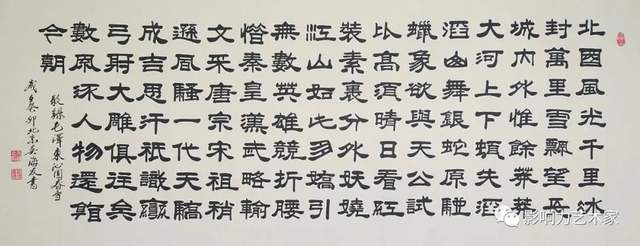 北國風光千里冰
封萬里雪飄望長
城內外惟餘莽莽
大河上下頓失滔
滔山舞銀蛇原馳
蠟象欲與天公試
比高須晴日看紅
裝素裹分外妖嬈
江山如此多嬌引
無數英雄競折腰
惜秦皇漢武略輸
文采唐宗宋祖稍
遜風騷一代天驕
成吉思汗祇識彎
弓射大雕俱往矣
數風流人物還看
今朝
敬録毛澤東沁園春雪
歲在癸卯北京吴海友書
影响力艺术家